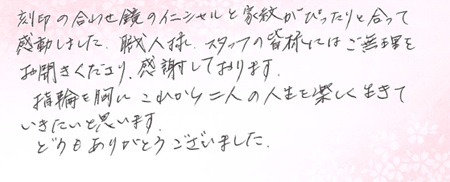 刻印の合わせ鏡のイニシャルと家紋がぴったりと合って
感動しました。職人様、スタッフの皆様にはご無理を
お聞きくださり、感謝しております。
指輪を胸に これから二人の人生を楽しく生きて
いきたいと思います。
どうもありがとうございました。